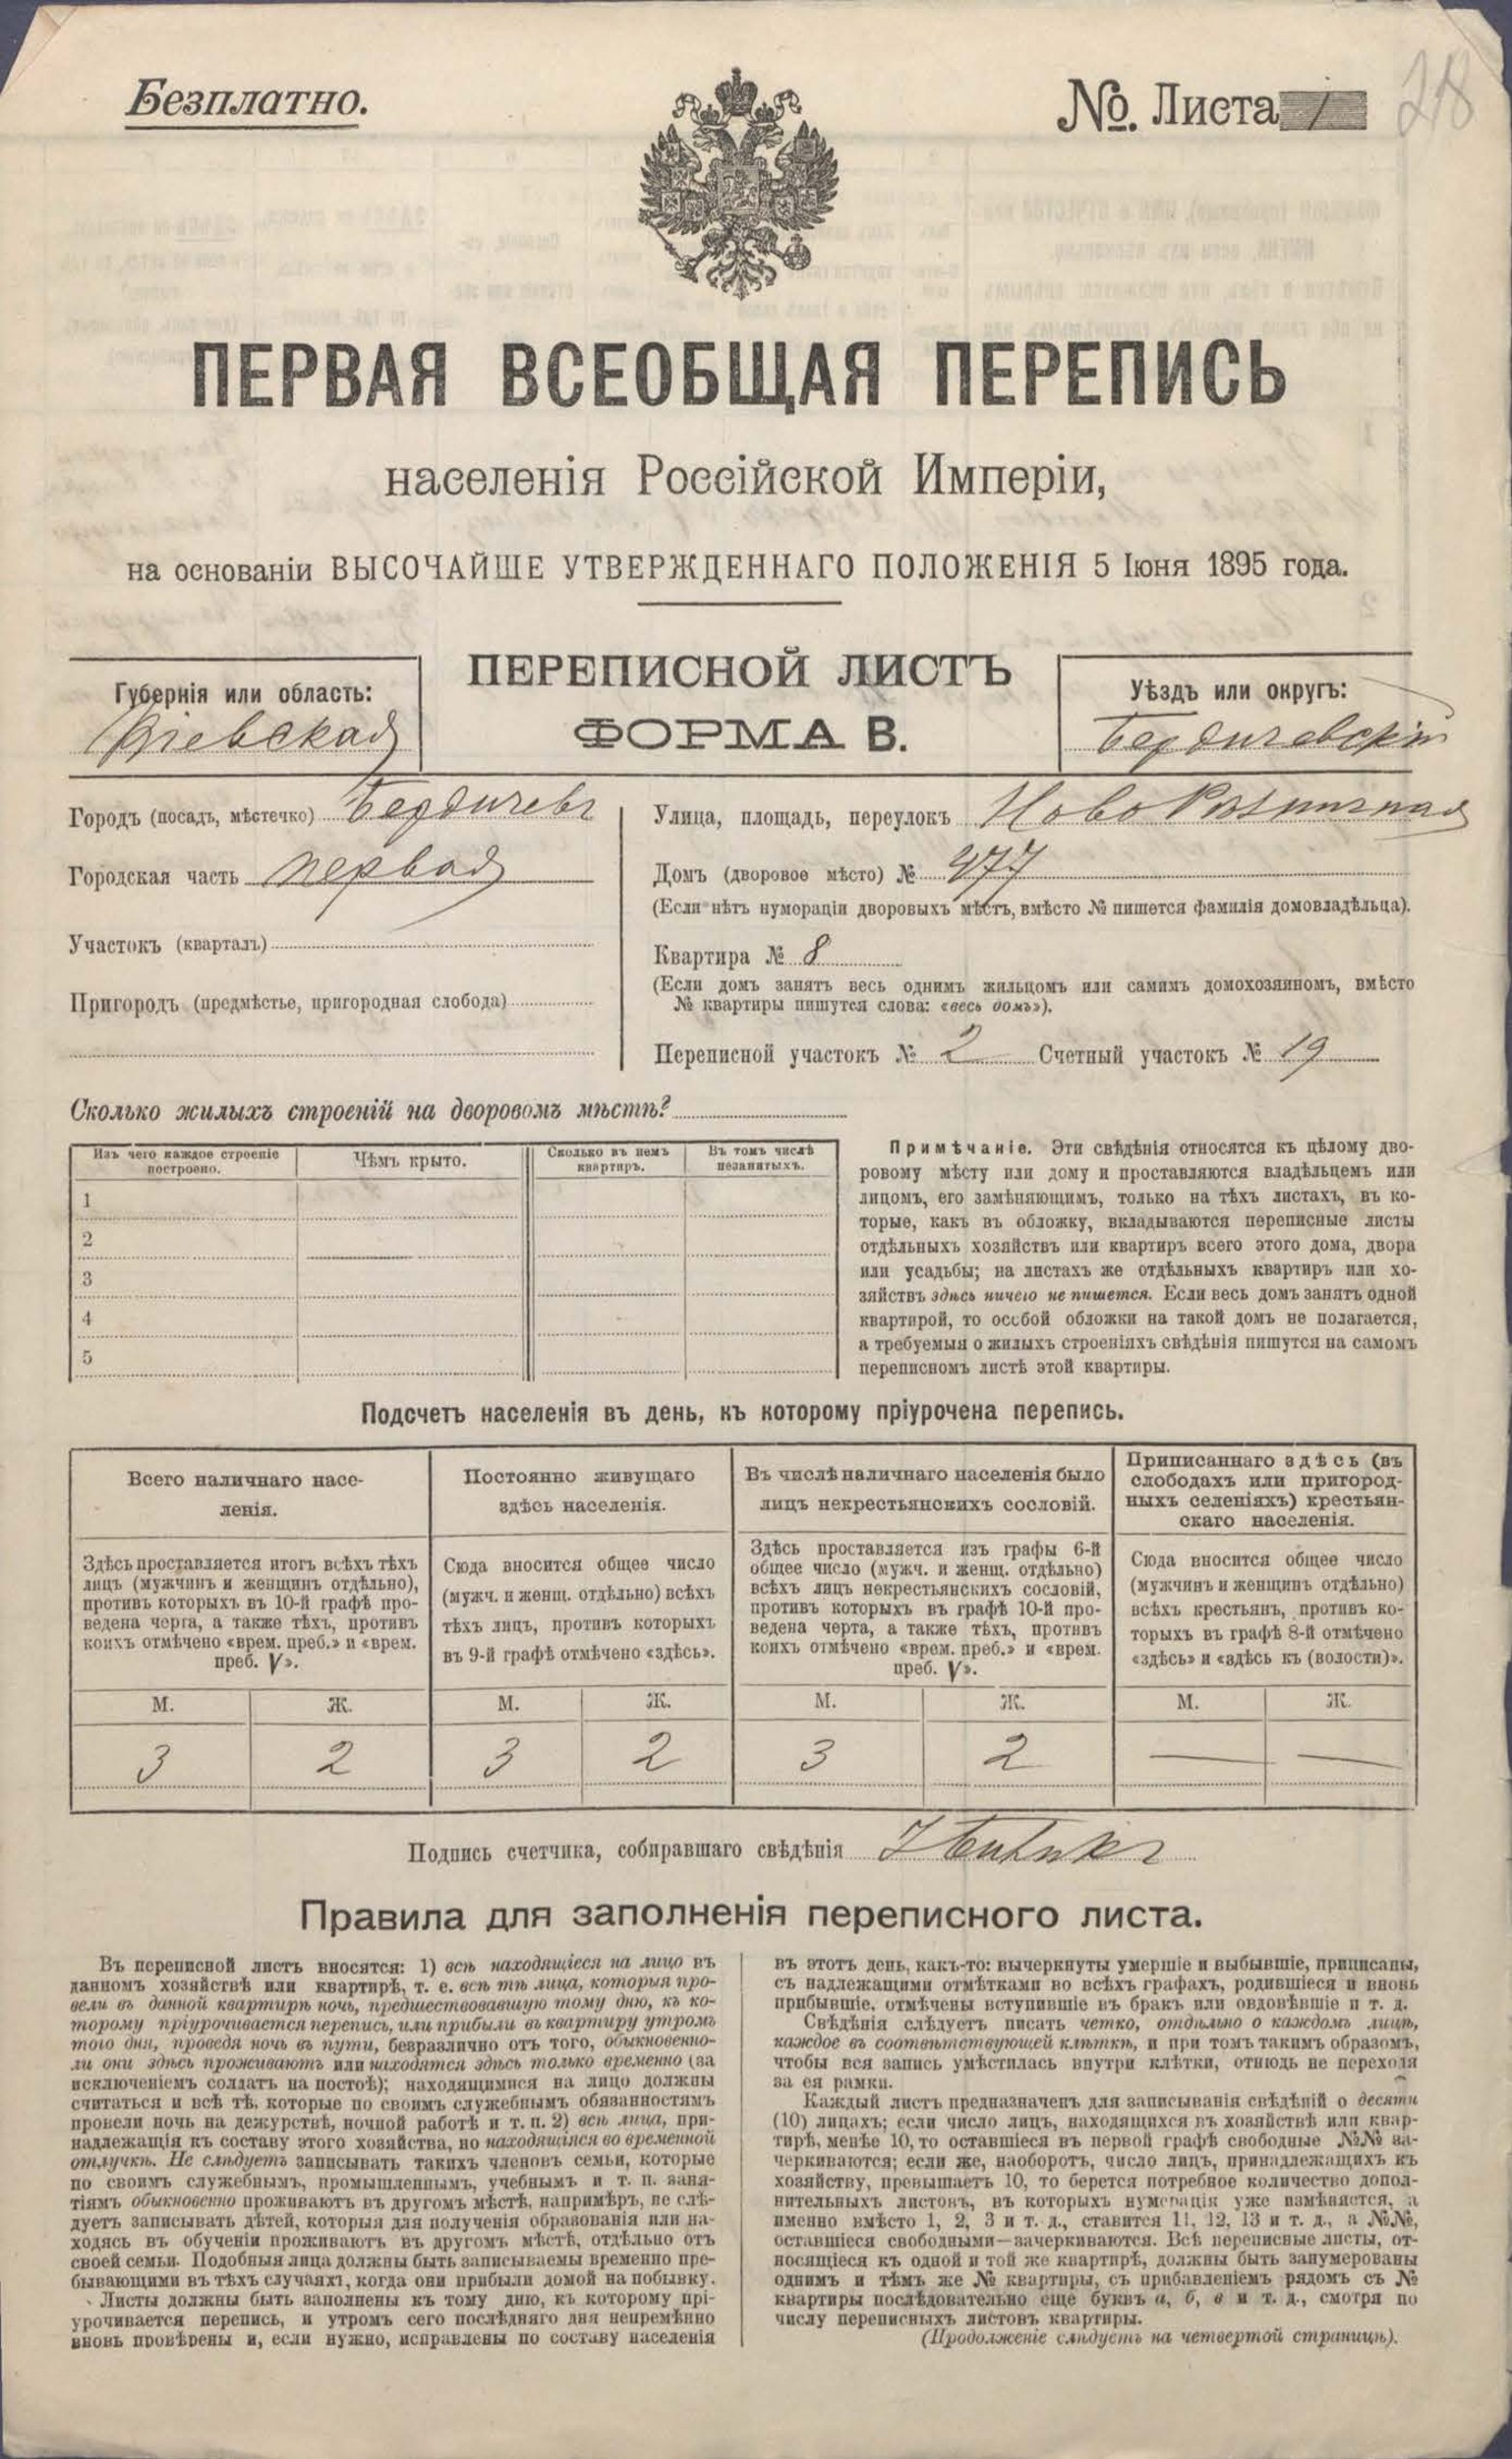 Безплатно.
№. Листа
28
ПЕРВАЯ ВСЕОБЩАЯ ПЕРЕПИСЬ
населенія Россійской Имперіи,
на основаніи ВЫСОЧАЙШЕ УТВЕРЖДЕННАГО ПОЛОЖЕНІЯ 5 Іюня 1895 года.
ПЕРЕПИСНОЙ ЛИСТЪ
ФОРМА В.
Губернія или область:
Кіевская
Уѣздъ или округъ:
Бердичевскій
Городъ (посадъ, мѣстечко) Бердичевъ
Городская часть первая
Участокъ (кварталъ)
Пригородъ (предмѣстье, пригородная слобода)
Улица, площадь, переулокъ Ново
Домъ (дворовое мѣсто) № 477
(Если нѣтъ нумораціи дворовыхъ мѣстъ, вмѣсто № пишется фамилія домовладѣльца).
Квартира № 8
(Если домъ занятъ весь однимъ жильцомъ или самимъ домохозяиномъ, вмѣсто
№ квартиры пишутся слова: «весь домъ»).
Переписной участокъ № 2 Счетный участокъ № 19
Сколько жилыхъ строеній на дворовомъ мѣстѣ?
Изъ чего каждое строеніе
построено.
Чѣмъ крыто.
Сколько въ немъ
квартиръ.
Въ томъ числѣ
незанятыхъ.
1
2
3
4
5
Примѣчаніе. Эти свѣдѣнія относятся къ цѣлому дво-
ровому мѣсту или дому и проставляются владѣльцемъ или
лицомъ, его замѣняющимъ, только на тѣхъ листахъ, въ ко-
торые, какъ въ обложку, вкладываются переписные листы
отдѣльныхъ хозяйствъ или квартиръ всего этого дома, двора
или усадьбы; на листахъ же отдѣльныхъ квартиръ или хо-
зяйствъ здѣсь ничего не пишется. Если весь домъ занятъ одной
квартирой, то особой обложки на такой домъ не полагается,
а требуемыя о жилыхъ строеніяхъ свѣдѣнія пишутся на самомъ
переписномъ листѣ этой квартиры.
Подсчетъ населенія въ день, къ которому пріурочена перепись.
Всего наличнаго насе-
ленія.
Постоянно живущаго
здѣсь населенія.
Въ числѣ наличнаго населенія было
лицъ некрестьянскихъ сословій.
Приписаннаго здѣсь (въ
слободахъ или пригород-
ныхъ селеніяхъ) крестьян-
скаго населенія.
Здѣсь проставляется итогъ всѣхъ тѣхъ
лицъ (мужчинъ и женщинъ отдѣльно),
противъ которыхъ въ 10-й графѣ про-
ведена черта, а также тѣхъ, противъ
коихъ отмѣчено «врем. преб.» и «врем.
преб. V».
Сюда вносится общее число
(мужч. и женщ. отдѣльно) всѣхъ
тѣхъ лицъ, противъ которыхъ
въ 9-й графѣ отмѣчено «здѣсь».
Здѣсь проставляется изъ графы 6-й
общее число (мужч. и женщ. отдѣльно)
всѣхъ лицъ некрестьянскихъ сословій,
противъ которыхъ въ графѣ 10-й про-
ведена черта, а также тѣхъ, противъ
коихъ отмѣчено «врем. преб.» и «врем.
преб. V».
Сюда вносится общее число
(мужчинъ и женщинъ отдѣльно)
всѣхъ крестьянъ, противъ ко-
торыхъ въ графѣ 8-й отмѣчено
«здѣсь» и «здѣсь къ (волости)».
М. Ж. М. Ж. М. Ж. М. Ж.
3 2 3 2 3 2 — —
Подпись счетчика, собиравшаго свѣдѣнія
Правила для заполненія переписного листа.
Въ переписной листъ вносятся: 1) всѣ находящіеся на лицо въ
данномъ хозяйствѣ или квартирѣ, т. е. всѣ тѣ лица, которыя про-
вели въ данной квартирѣ ночь, предшествовавшую тому дню, къ ко-
торому пріурочивается перепись, или прибыли въ квартиру утромъ
того дня, проведя ночь въ пути, безразлично отъ того, обыкновенно-
ли они здѣсь проживаютъ или находятся здѣсь только временно (за
исключеніемъ солдатъ на постоѣ); находящимися на лицо должны
считаться и всѣ тѣ, которые по своимъ служебнымъ обязанностямъ
провели ночь на дежурствѣ, ночной работѣ и т. п. 2) всѣ лица, при-
надлежащія къ составу этого хозяйства, но находящіяся во временной
отлучкѣ. Не слѣдуетъ записывать такихъ членовъ семьи, которые
по своимъ служебнымъ, промышленнымъ, учебнымъ и т. п. заня-
тіямъ обыкновенно проживаютъ въ другомъ мѣстѣ, напримѣръ, не слѣ-
дуетъ записывать дѣтей, которыя для полученія образованія или на-
ходясь въ обученіи проживаютъ въ другомъ мѣстѣ, отдѣльно отъ
своей семьи. Подобныя лица должны быть записываемы временно пре-
бывающими въ тѣхъ случаяхъ, когда они прибыли домой на побывку.
Листы должны быть заполнены къ тому дню, къ которому прі-
урочивается перепись, и утромъ сего послѣдняго дня непремѣнно
вновь провѣрены и, если нужно, исправлены по составу населенія
въ этотъ день, какъ-то: вычеркнуты умершіе и выбывшіе, приписаны,
съ надлежащими отмѣтками во всѣхъ графахъ, родившіеся и вновь
прибывшіе, отмѣчены вступившіе въ бракъ или овдовѣвшіе и т. д.
Свѣдѣнія слѣдуетъ писать четко, отдѣльно о каждомъ лицѣ,
каждое въ соотвѣтствующей клѣткѣ, и при томъ такимъ образомъ,
чтобы вся запись умѣстилась внутри клѣтки, отнюдь не переходя
за ея рамки.
Каждый листъ предназначенъ для записыванія свѣдѣній о десяти
(10) лицахъ; если число лицъ, находящихся въ хозяйствѣ или квар-
тирѣ, менѣе 10, то оставшіеся въ первой графѣ свободные №№ за-
черкиваются; если же, наоборотъ, число лицъ, принадлежащихъ къ
хозяйству, превышаетъ 10, то берется потребное количество допол-
нительныхъ листовъ, въ которыхъ нумерація уже измѣняется, а
именно вмѣсто 1, 2, 3 и т. д., ставится 11, 12, 13 и т. д., а №№,
оставшіеся свободными—зачеркиваются. Всѣ переписные листы, от-
носящіеся къ одной и той же квартирѣ, должны быть занумерованы
однимъ и тѣмъ же № квартиры, съ прибавленіемъ рядомъ съ №
квартиры послѣдовательно еще буквъ а, б, в и т. д., смотря по
числу переписныхъ листовъ квартиры.
(Продолженіе слѣдуетъ на четвертой страницѣ).